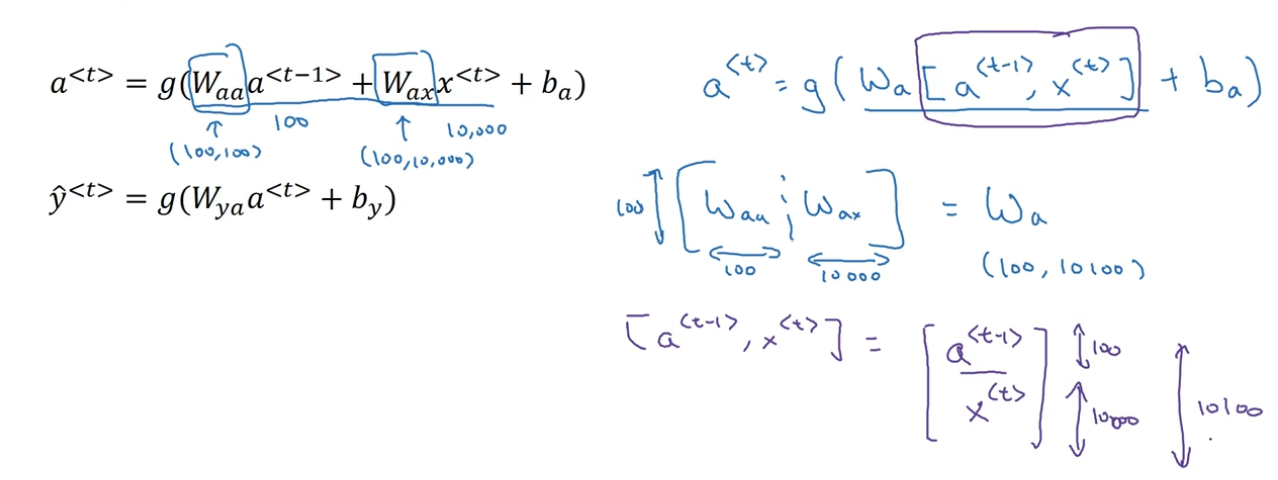 a^{<t>} = g(W_{aa}a^{<t-1>} + W_{ax}x^{<t>} + b_a)
↑ 100 ↑ 10,000
(100,100) (100,10,000)
ŷ^{<t>} = g(W_{ya}a^{<t>} + b_y)
a^{<t>} = g( W_a [ a^{<t-1>}, x^{<t>} ] + b_a)
100 ↕ [ W_{aa} ¦ W_{ax} ] = W_a
↔ 100 ↔ 10000 (100, 10100)
[ a^{<t-1>}, x^{<t>} ] = [ a^{<t-1>} / x^{<t>} ] ↕ 100 ↕ 10000 ↕ 10100